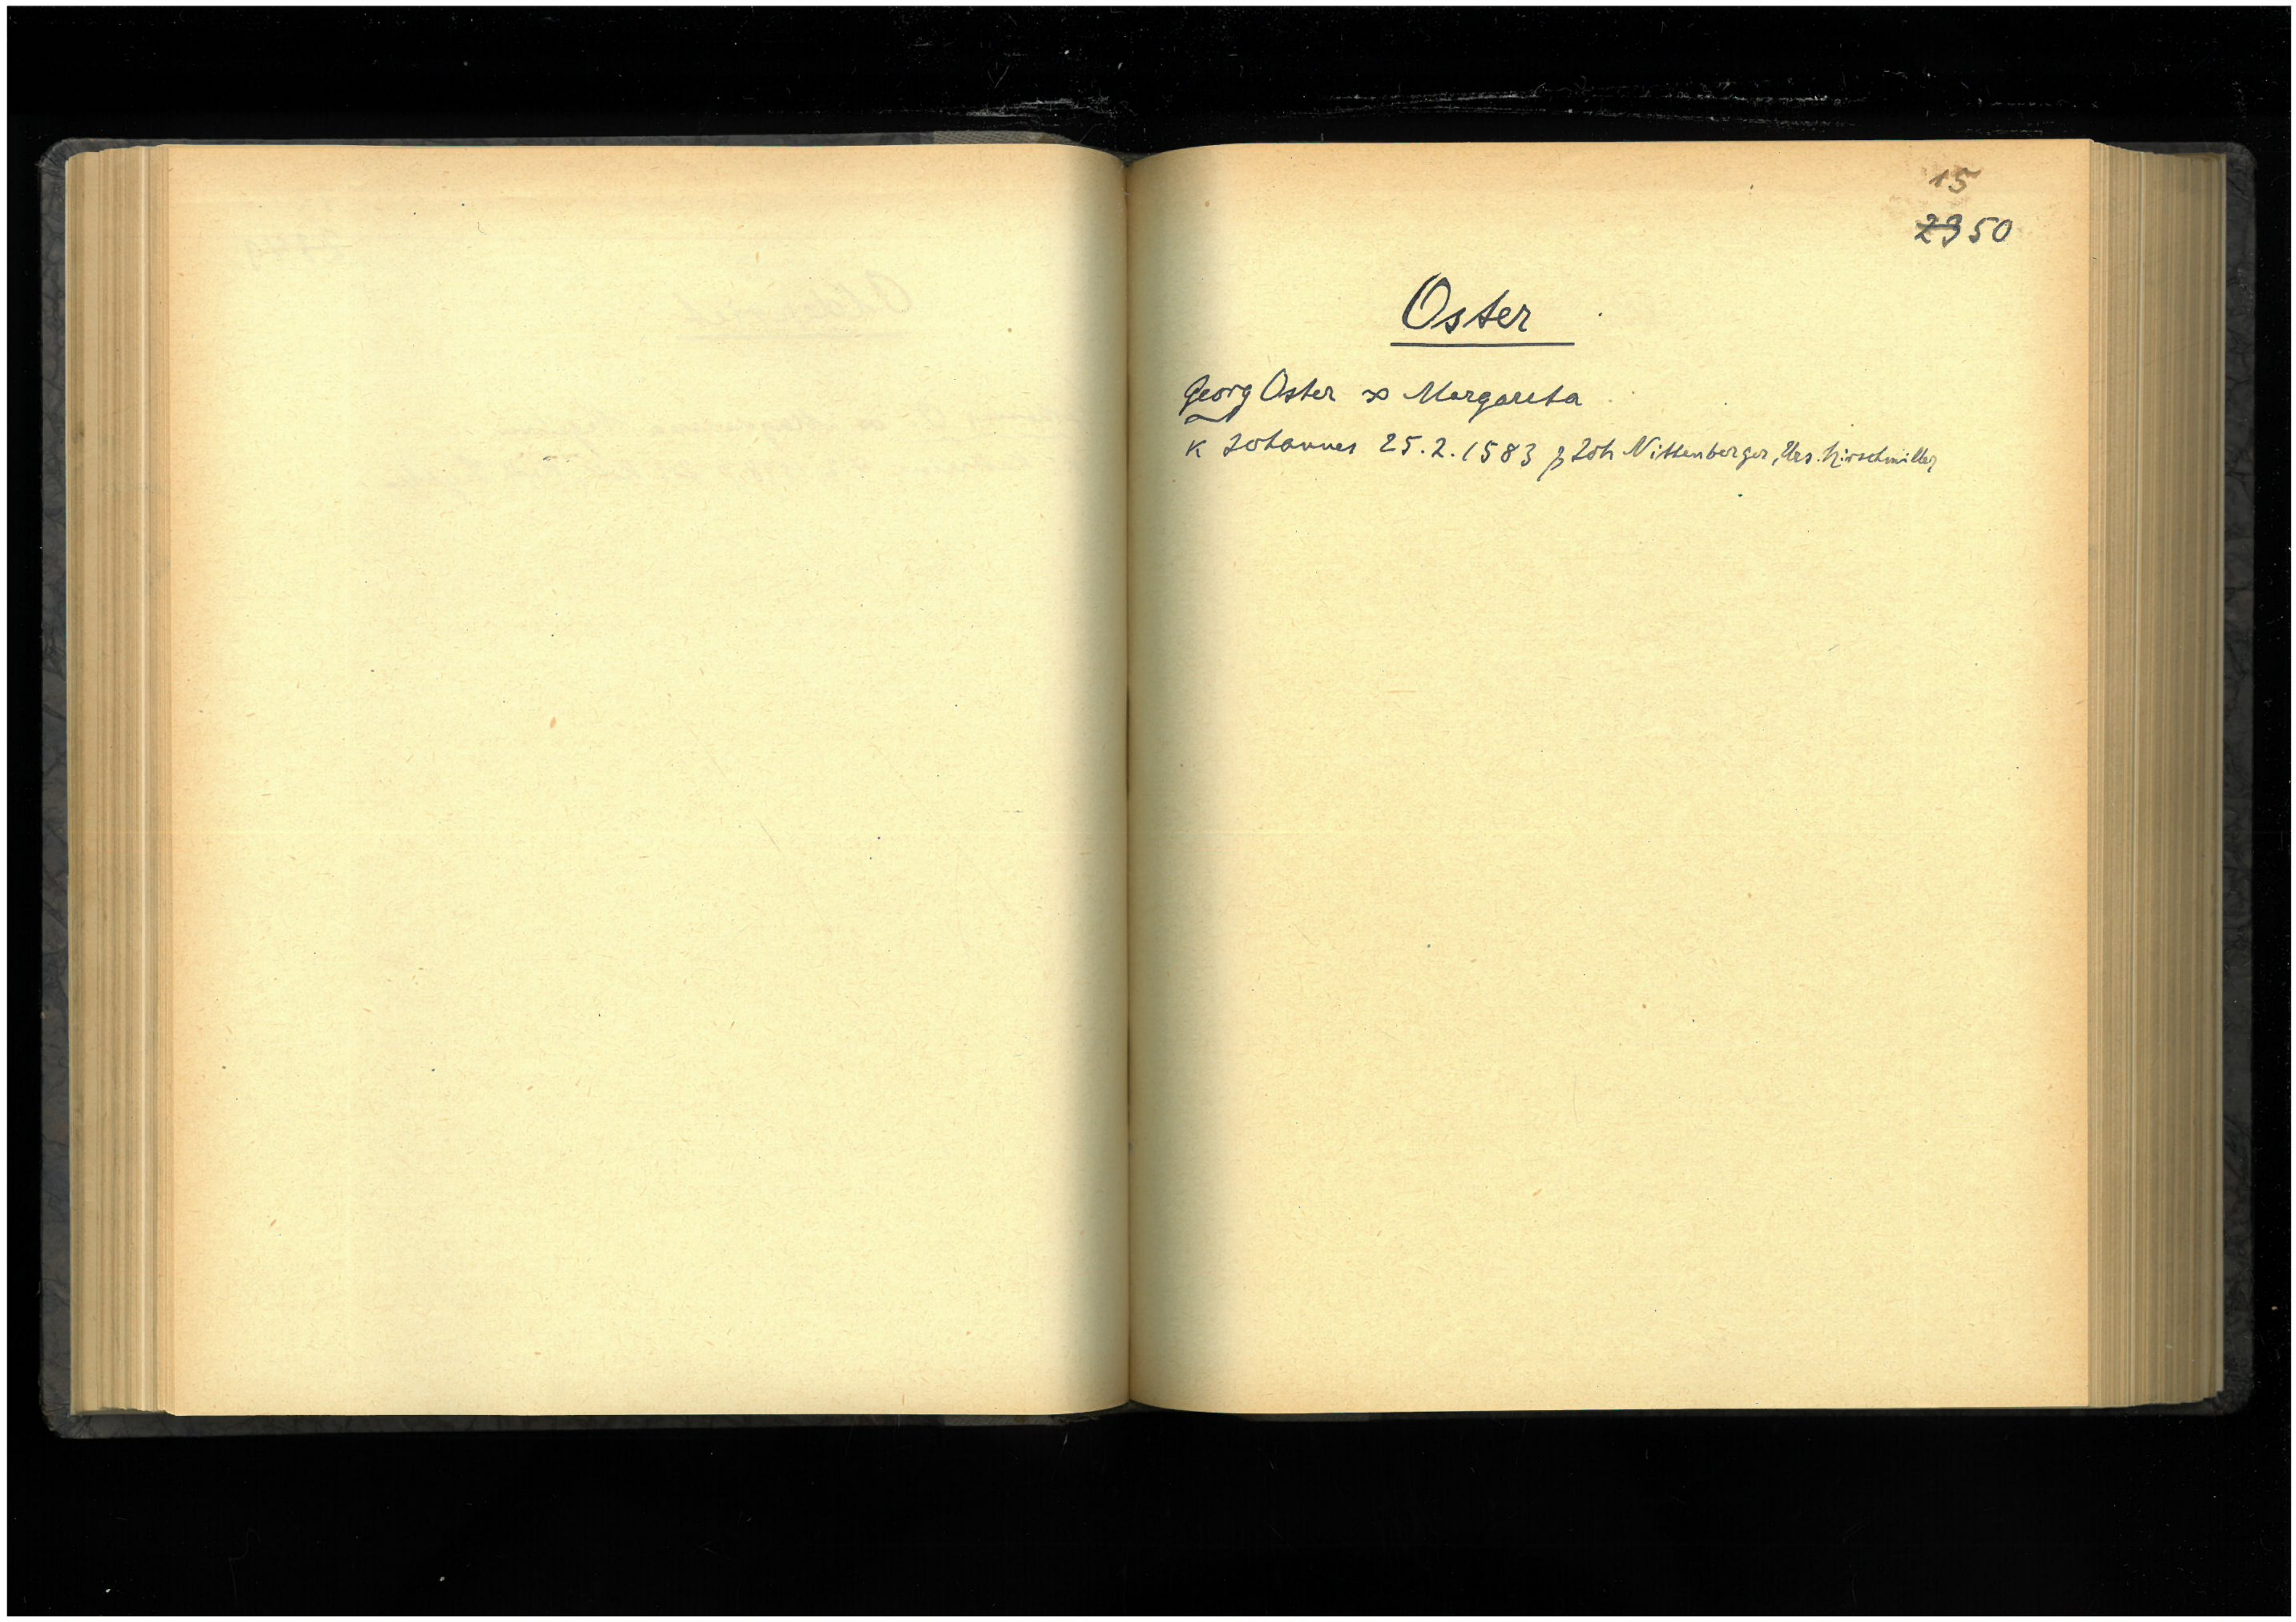 15
2350
Oster
Georg Oster ∞ Margareta
K Johannes 25.2.1583 p Joh Nittenberger, Urs. Hirschmiller